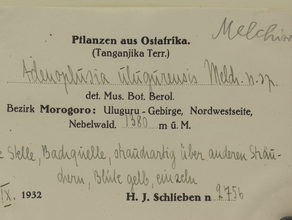 Melchior
Pflanzen aus Ostafrika.
(Tanganjika Terr.)
Adenoplusia ulugurensis Melch. n. sp.
det. Mus. Bot. Berol.
Bezirk Morogoro: Uluguru-Gebirge, Nordwestseite,
Nebelwald. 1380 m ü. M.
Stelle, Bachquelle, strauchartig über anderen Sträu-
chern, Blüte gelb, einzeln
IX. 1932 H. J. Schlieben n 2756